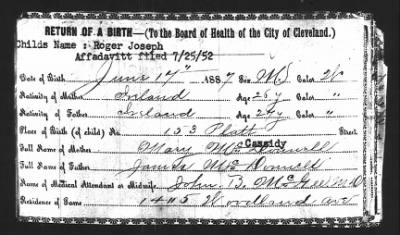 RETURN OF A BIRTH—(To the Board of Health of the City of Cleveland.)
Childs Name : Roger Joseph
Affadavitt filed 7/25/52
Date of Birth June 17" 1887 Sex M. Color W
Nativity of Mother Ireland Age 25 y Color "
Nativity of Father Ireland Age 27 y Color "
Place of Birth (of child) No. 153 Platt Street
Cassidy
Full Name of Mother Mary McDonnell
Full Name of Father James McDonnell
Name of Medical Attendant or Midwife, John B. McGee M D
Residence of Same 1405 Woodland ave